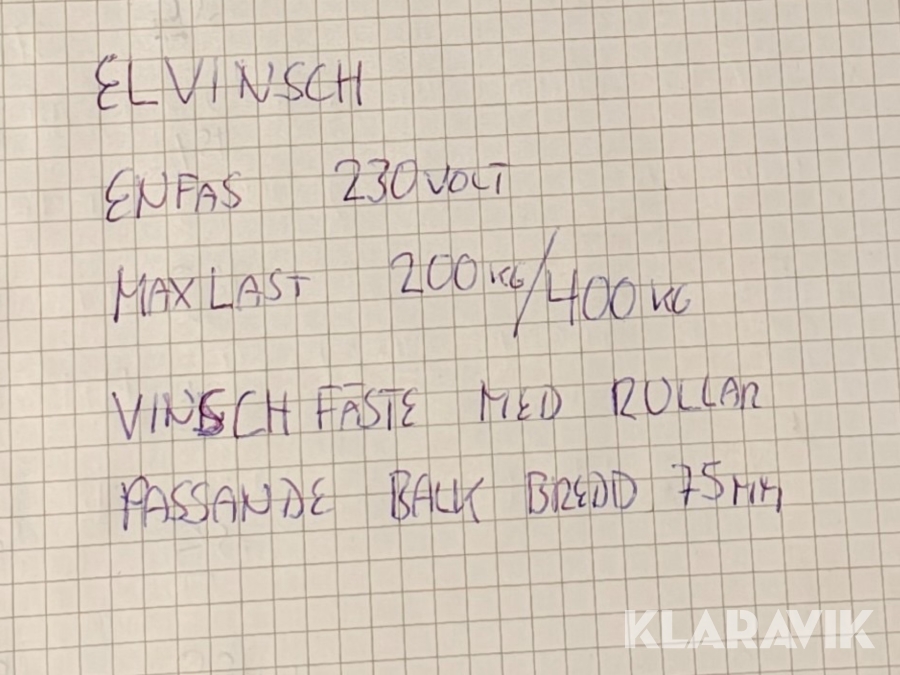 ELVINSCH
ENFAS 230VOLT
MAX LAST 200KG/400KG
VINSCHFÄSTE MED RULLAR
PASSANDE BALK BREDD 75MM
KLARAVIK